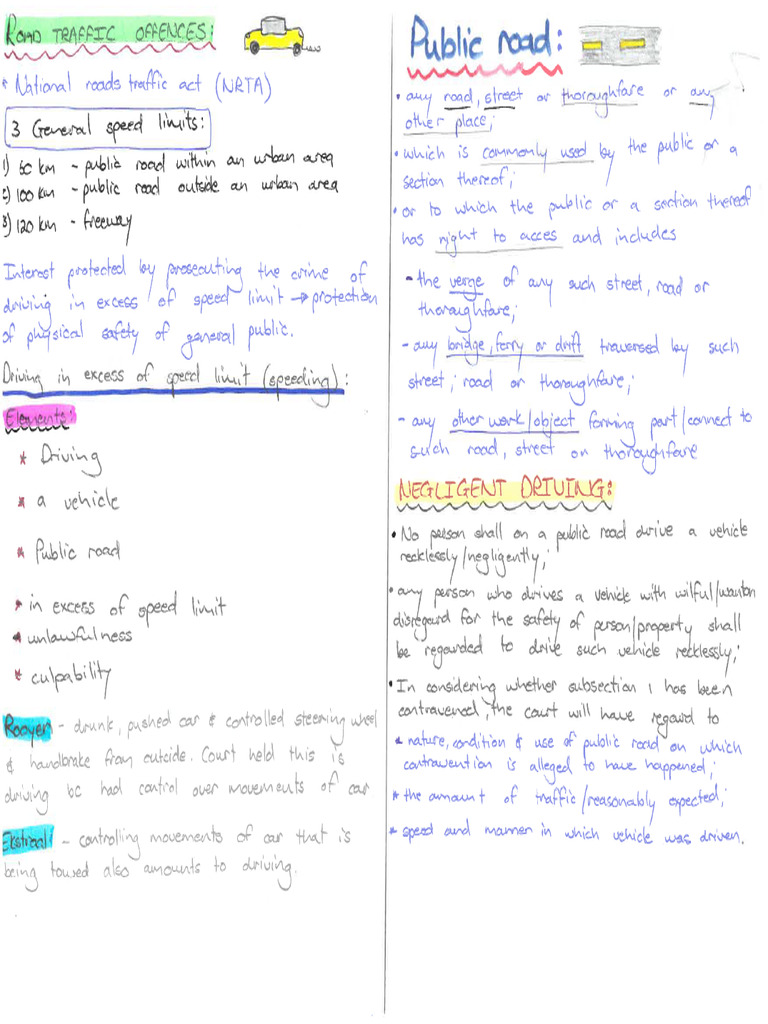 ROAD TRAFFIC OFFENCES:
* National roads traffic act (NRTA)
3 General speed limits:
1) 60 km - public road within an urban area
2) 100 km - public road outside an urban area
3) 120 km - freeway
Interest protected by prosecuting the crime of
driving in excess of speed limit → protection
of physical safety of general public.
Driving in excess of speed limit (speeding):
Elements:
* Driving
* a vehicle
* Public road
* in excess of speed limit
* unlawfulness
* culpability
Rooyen - drunk, pushed car & controlled steering wheel
& handbrake from outside. Court held this is
driving bc had control over movements of car
Ekstraal - controlling movements of car that is
being towed also amounts to driving.
Public road:
• any road, street or thoroughfare or any
other place;
• which is commonly used by the public or a
section thereof;
• or to which the public or a section thereof
has right to acces and includes
- the verge of any such street, road or
thoroughfare;
- any bridge, ferry or drift traversed by such
street; road or thoroughfare;
- any other work/object forming part/connect to
such road, street on thoroughfare
NEGLIGENT DRIVING:
• No person shall on a public road drive a vehicle
recklessly/negligently;
• any person who drives a vehicle with wilful/wanton
disregard for the safety of person/property shall
be regarded to drive such vehicle recklessly;
• In considering whether subsection 1 has been
contravened, the court will have regard to
* nature, condition & use of public road on which
contravention is alleged to have happened;
* the amount of traffic/reasonably expected;
* speed and manner in which vehicle was driven.